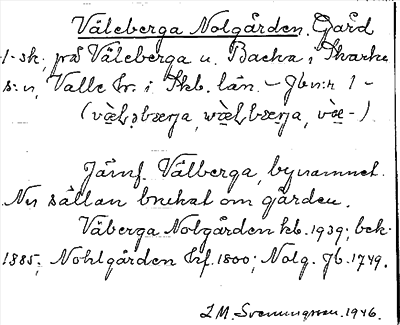 Väleberga Nolgården. Gård
1 sk., på Väleberga u. Backa i Skarke
s:n, Valle hr. i Skb. län. – Jbn:r 1 –
(væ̀l,bærja, wæ̀lbærja, væ̀-).
Jämf. Välberga, bynamnet.
Nu sällan brukat om gården.
Väberga Nolgården kb. 1939; bek.
1885; Nohlgården hf. 1800; Nolg. Jb. 1749.
I. M. Svenungsson. 1946.